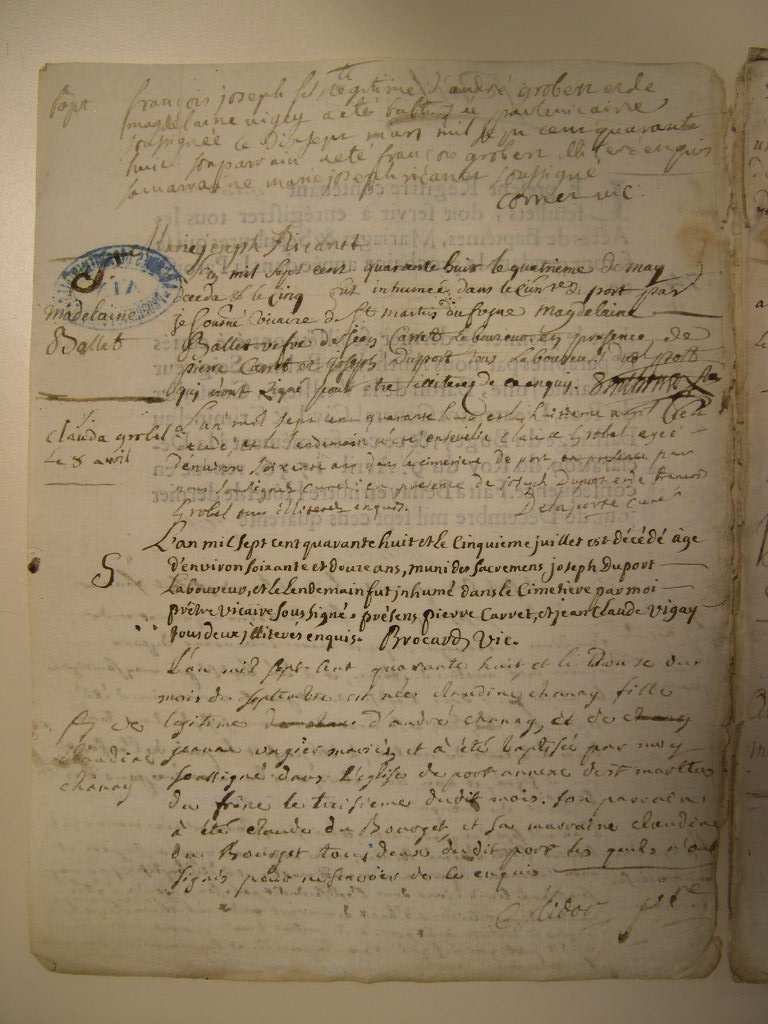 Bapt
françois joseph fils legitime d'andré grobert et de
magdelaine vigey a eté battisé par le vicaire
soussignée ce Dixsept mars mil sept cent quarante
huit son parrain a eté françois grobert
sa marraine marie joseph soussigné
cornet vic
joseph
L'an mil sept cent quarante huit le quatrieme de may
Madelaine
deceda et le cinq fut inhumée dans le cimre de port par
je soussigné vicaire de st martin du fresne Magdelaine
Ballet
Ballet vefve de Jean Carret Laboureur en presence de
pierre Carret et joseph Dupport tous Laboureurs de port
qui n'ont signé pour etre illiterez de ce enquis.
L'an mil sept cent quarante huit et le huitieme avril est
Clauda grobel
decede et le lendemain a eté ensevelie Clauda Grobel agee
le 8 avril
d'environ soixante ans dans le cimetiere de port en presence par
nous soussigné curé en presence de joseph Duport et de francois
Grobel tous illiteres enquis. Delaporte curé
L'an mil sept cent quarante huit et le Cinquieme juillet est décédé âge
S
d'environ soixante et douze ans, muni des sacremens joseph Duport
Laboureur, et le lendemain fut jnhumé dans le Cimetiere par moi
prêtre vicaire sous signé. présens pierre Carret, et jean Claude Vigay
tous deux jlliterés enquis. Brocard Vic.
L'an mil sept cent quarante huit et le Douze du
mois de septembre est née claudine chanay fille
legitime d'andré chanay, et de
B de
claudine
jeanne mariés, et à été baptisée par moy
chanay
soussigné dans l'eglise de port annexe de st martin
du frêne le treisieme dudit mois. son parrain
à été claude du Bourget et sa marraine claudine
du Bourget tous deux dudit port les quels n'ont
signés pour ne scavoir de ce enquis